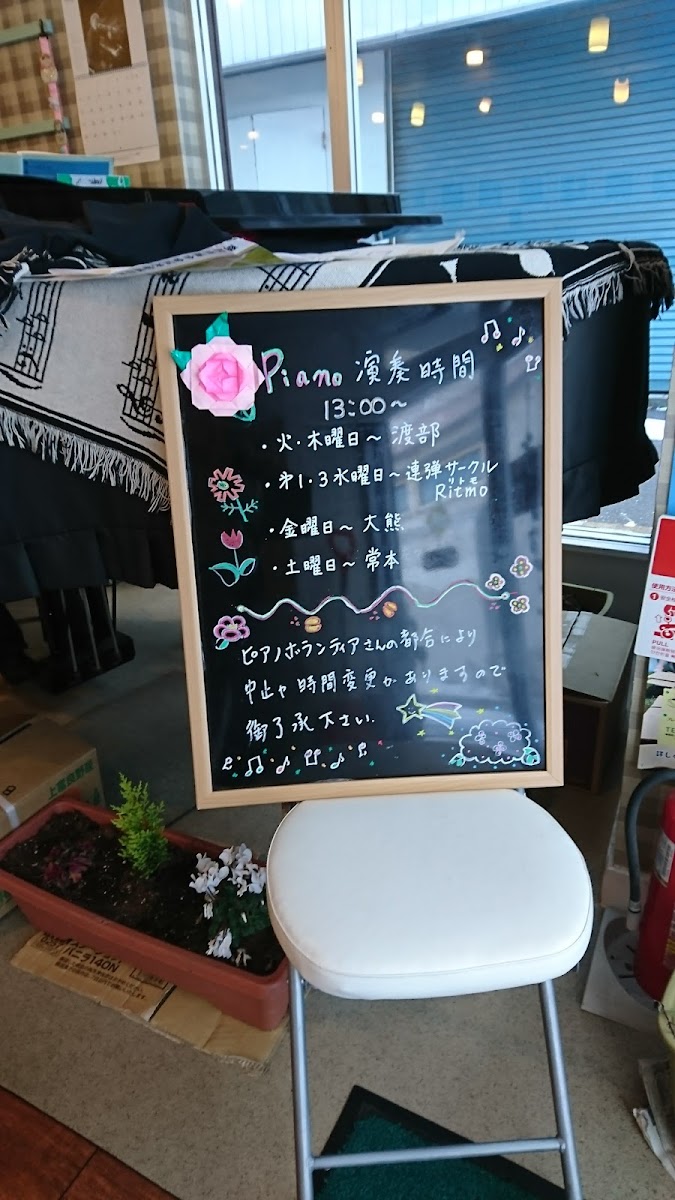 Piano 演奏時間
13:00〜
・火・木曜日〜 渡部
・第1・3水曜日〜連弾サークル
リトモ
Ritmo
・金曜日〜 大熊
・土曜日〜 常本
ピアノボランティアさんの都合により
中止や時間変更がありますので
御了承下さい.
使用方法
PULL
バニラ140N